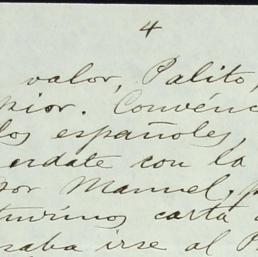 4
valor, Palito,
rior. Convénc
los españoles,
erdate con la
por Manuel, p
turimos carta
raba irse al P